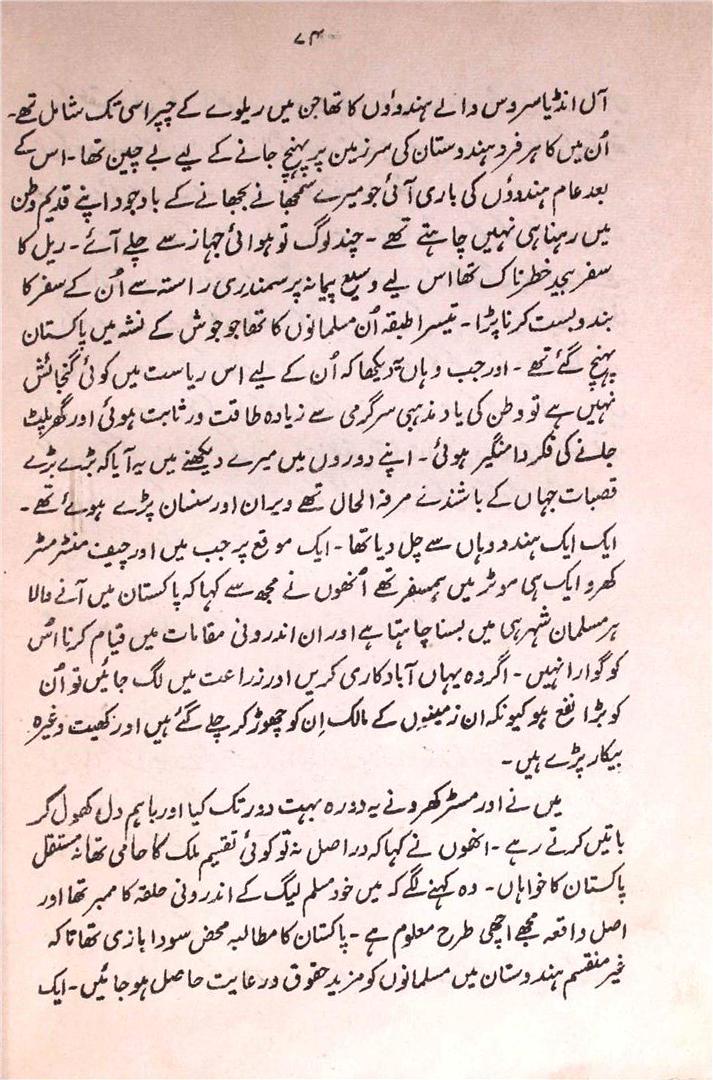 ۷۴
آل انڈیا سروس والے ہندوؤں کا تھا جن میں ریلوے کے چپراسی تک شامل تھے۔
اُن میں کا ہر فرد ہندوستان کی سرزمین پر پہنچ جانے کے لیے بے چین تھا۔ اس کے
بعد عام ہندوؤں کی باری آئی جو میرے سمجھانے بجھانے کے باوجود اپنے قدیم وطن
میں رہنا ہی نہیں چاہتے تھے۔ چند لوگ تو ہوائی جہاز سے چلے آئے۔ ریل کا
سفر بیحد خطرناک تھا اس لیے وسیع پیمانہ پر سمندری راستہ سے اُن کے سفر کا
بندوبست کرنا پڑا۔ تیسرا طبقہ اُن مسلمانوں کا تھا جو جوش کے نشہ میں پاکستان
پہنچ گئے تھے۔ اور جب وہاں یہ دیکھا کہ اُن کے لیے اس ریاست میں کوئی گنجائش
نہیں ہے تو وطن کی یاد مذہبی سرگرمی سے زیادہ طاقت ور ثابت ہوئی اور گھر پلٹ
جانے کی فکر دامنگیر ہوئی۔ اپنے دوروں میں میرے دیکھنے میں یہ آیا کہ بڑے بڑے
قصبات جہاں کے باشندے مرفہ الحال تھے ویران اور سنسان پڑے ہوئے تھے۔
ایک ایک ہندو وہاں سے چل دیا تھا۔ ایک موقع پر جب میں اور چیف منسٹر مسٹر
کھرو ایک ہی موٹر میں ہمسفر تھے اُنھوں نے مجھ سے کہا کہ پاکستان میں آنے والا
ہر مسلمان شہر ہی میں بسنا چاہتا ہے اور ان اندرونی مقامات میں قیام کرنا اُس
کو گوارا نہیں۔ اگر وہ یہاں آباد کاری کریں اور زراعت میں لگ جائیں تو اُن
کو بڑا نفع ہو کیونکہ ان زمینوں کے مالک اِن کو چھوڑ کر چلے گئے ہیں اور کھیت وغیرہ
بیکار پڑے ہیں۔
میں نے اور مسٹر کھرو نے یہ دورہ بہت دور تک کیا اور باہم دل کھول کر
باتیں کرتے رہے۔ انھوں نے کہا کہ دراصل نہ تو کوئی تقسیم ملک کا حامی تھا نہ مستقل
پاکستان کا خواہاں۔ وہ کہنے لگے کہ میں خود مسلم لیگ کے اندرونی حلقہ کا ممبر تھا اور
اصل واقعہ مجھے اچھی طرح معلوم ہے۔ پاکستان کا مطالبہ محض سودا بازی تھا تا کہ
غیر منقسم ہندوستان میں مسلمانوں کو مزید حقوق ورعایت حاصل ہو جائیں۔ ایک